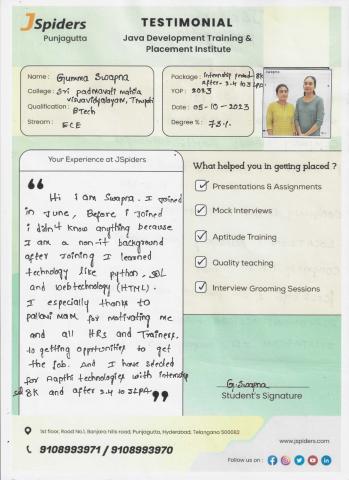 JSpiders
Punjagutta
TESTIMONIAL
Java Development Training &
Placement Institute
Name : Gumma Swapna
College : Sri padmavati mahila
visvavidyalayam, Tirupti
Qualification : BTech
Stream : ECE
Package : Internship period - 8K
after - 3.4 to 3LPA
YOP : 2023
Date : 05-10-2023
Degree % : 73.1.
Swapna
Your Experience at JSpiders
Hi I am Swapna. I joined
in June, Before I joined
i didn't know anything because
I am a non-it background
after Joining I learned
technology like python, SQL
and Webtechnology (HTML).
I especially thanks to
pallavi mam for motivating me
and all HRs and Trainers.
to getting opportunities to get
the job. And I have selected
for Aapthi technologies with internship
8K and after 3.4 to 3LPA
What helped you in getting placed ?
Presentations & Assignments
Mock Interviews
Aptitude Training
Quality teaching
Interview Grooming Sessions
G. Swapna
Student's Signature
1st floor, Road No.1, Banjara hills road, Punjagutta, Hyderabad, Telangana 500082
9108993971 / 9108993970
www.jspiders.com
Follow us on :